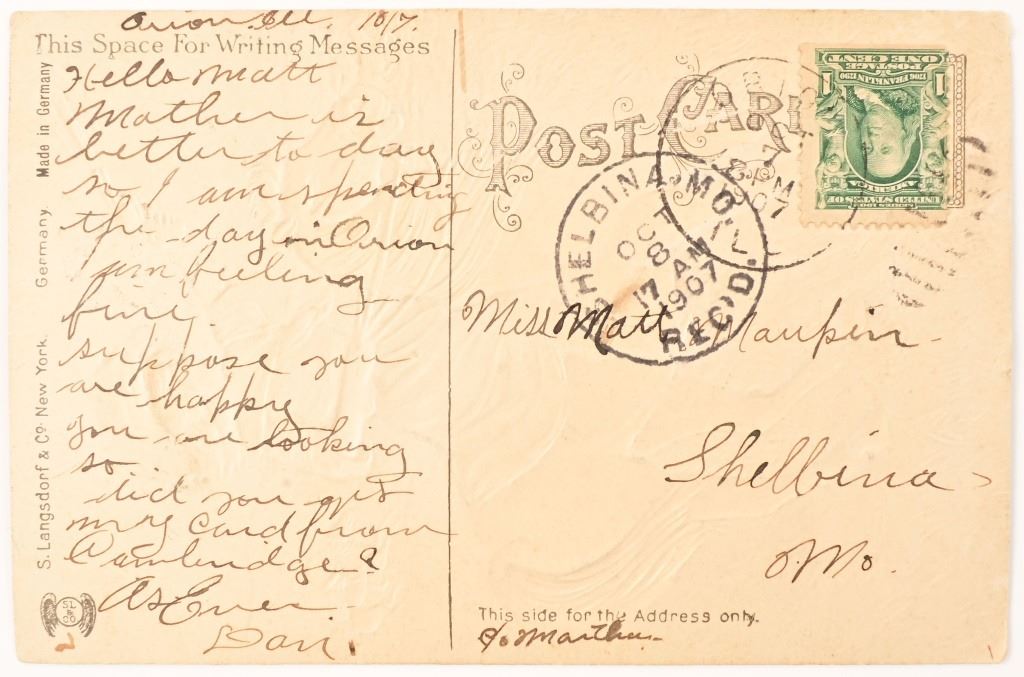 Orion. Ill. 10/7.
This Space For Writing Messages
Hello Matt
Mother is
better to day
so I am spending
the day in Orion
am feeling
fine.
suppose you
are happy
you are looking
so
did you get
my card from
Cambridge?
As Ever
S. Langsdorf & Co. New York. Germany. Made in Germany
SL & CO
POST CARD
8 PM
07
ILL
SHELBINA, MO.
OCT
8
17 AM
1907
REC'D.
POSTAGE ONE CENT
1706 FRANKLIN 1790
1 1
UNITED STATES OF AMERICA
Miss Matt Maupin
Shelbina
Mo.
This side for the Address only.
c/o Martha